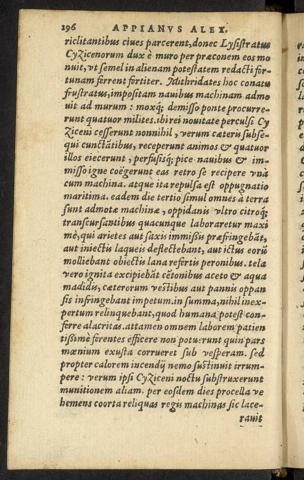 196 APPIANVS ALEX.
riclitantibus ciues parcerent, donec Lysistratus
CyZicenorum dux è muro per præconem eos mo
nuit, vt semel in alienam potestatem redacti for-
tunam ferrent fortiter. Mithridates hoc conatu
frustratus, impositam nauibus machinam admo
uit ad murum : moxq; demisso ponte procurre-
runt quatuor milites. ibi rei nouitate perculsi Cy
Ziceni cesserunt nonnihil, verum cæteris subse-
qui cunctātibus, receperunt animos & quatuor
illos eiecerunt, perfusisq; pice nauibus & im-
misso igne coëgerunt eas retro se recipere vnà
cum machina. atque ita repulsa est oppugnatio
maritima. eadem die tertio simul omnes à terra
sunt admotæ machinæ, oppidanis vltro citroq;
transcursantibus quacunque laboraretur maxi
mè, qui arietes aut saxis immissis præfringebāt,
aut iniectis laqueis deflectebant, aut ictus eorū
molliebant obiectis lana refertis peronibus. tela
vero ignita excipiebāt cētonibus aceto & aqua
madidis, cæterorum vestibus aut pannis oppan
sis infringebant impetum. in summa, nihil inex-
pertum relinquebant, quod humana potest con-
ferre alacritas. attamen omnem laborem patien
tissimè firentes efficere non potuerunt quin pars
mœnium exusta corrueret sub vesperam. sed
propter calorem incendij nemo sustinuit irrum-
pere : verum ipsi CyZiceni noctu substruxerunt
munitionem aliam. per eosdem dies procella ve
hemens coorta reliquas regis machinas sic lace-
rauit